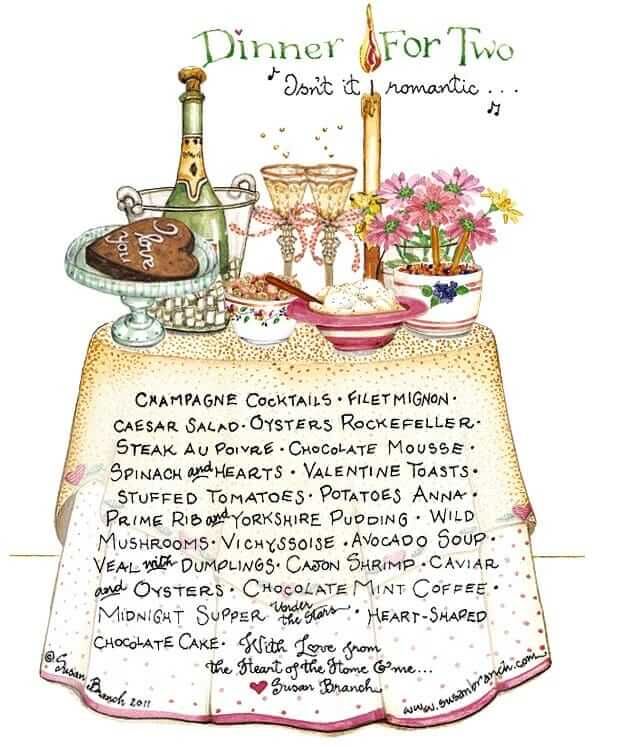 Dinner For Two
Isn't it romantic...
I love
you
CHAMPAGNE COCKTAILS • FILET MIGNON •
CAESAR SALAD • OYSTERS ROCKEFELLER •
STEAK AU POIVRE • CHOCOLATE MOUSSE •
SPINACH and HEARTS • VALENTINE TOASTS •
STUFFED TOMATOES • POTATOES ANNA •
PRIME RIB and YORKSHIRE PUDDING • WILD
MUSHROOMS • VICHYSSOISE • AVOCADO SOUP •
VEAL with DUMPLINGS • CAJUN SHRIMP • CAVIAR
and OYSTERS • CHOCOLATE MINT COFFEE •
MIDNIGHT SUPPER Under the Stars • HEART-SHAPED
CHOCOLATE CAKE • With Love from
the Heart of the Home & me...
♥ Susan Branch
© Susan Branch 2011
www.susanbranch.com